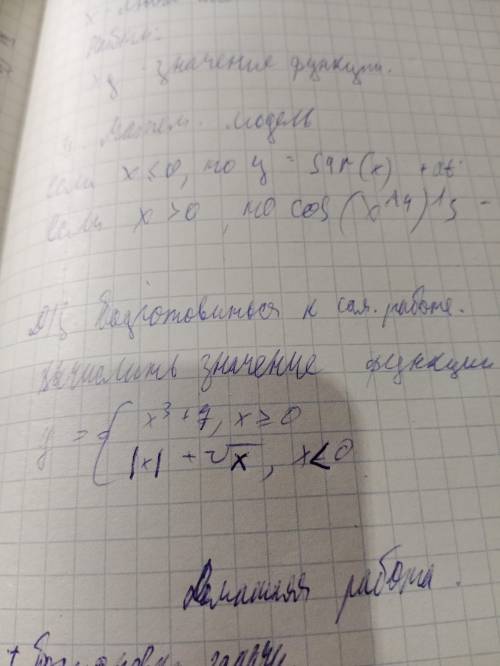 y - значение функции.
Матем. модель
если x ≤ 0, то y = sqr(x) +
если x > 0, то cos(x^4)^5 -
Д/З. Подготовиться к сам. работе.
Вычислить значение функции
y = { x³ + 7, x ≥ 0
|x| + √x, x < 0
Домашняя работа.